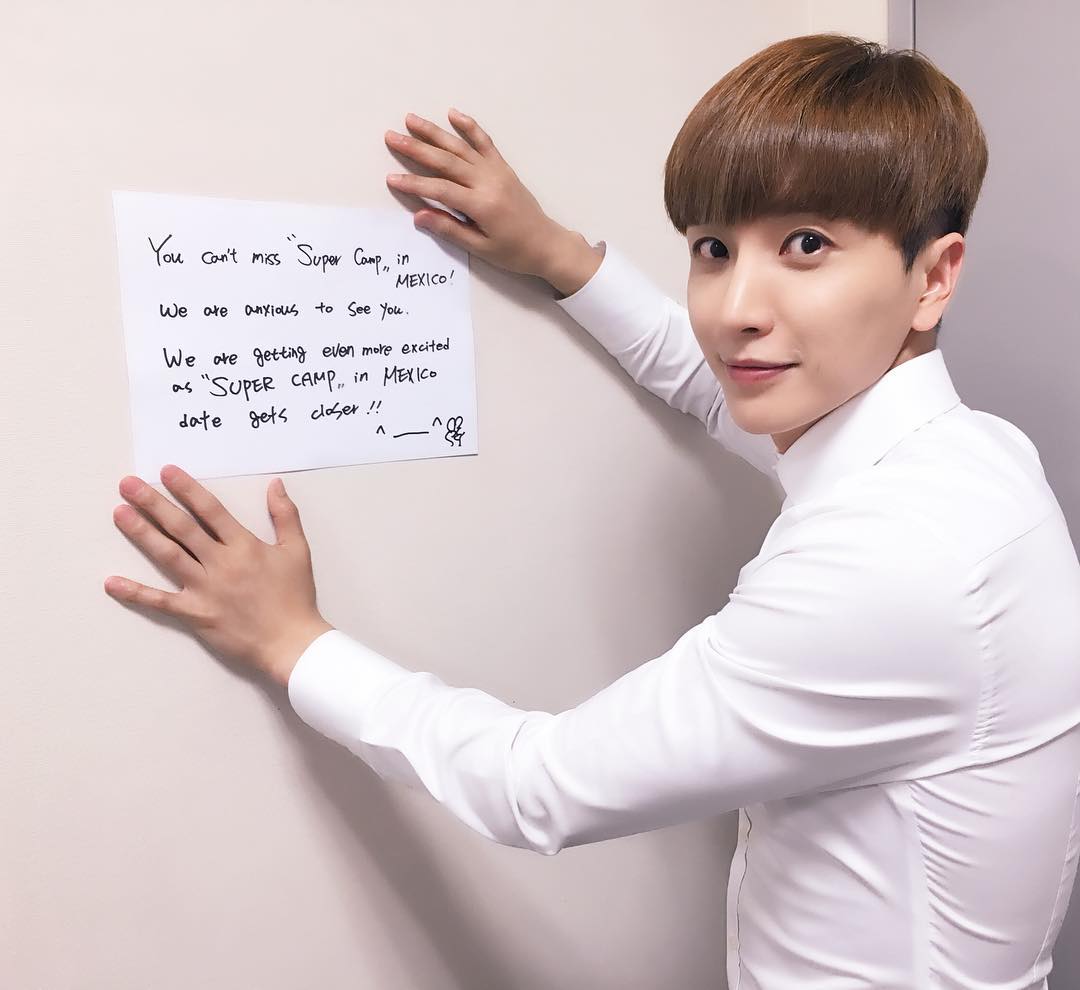 You can't miss "Super Camp„ in
MEXICO!
We are anxious to see you.
We are getting even more excited
as "SUPER CAMP„ in MEXICO
date gets closer!!
^__^